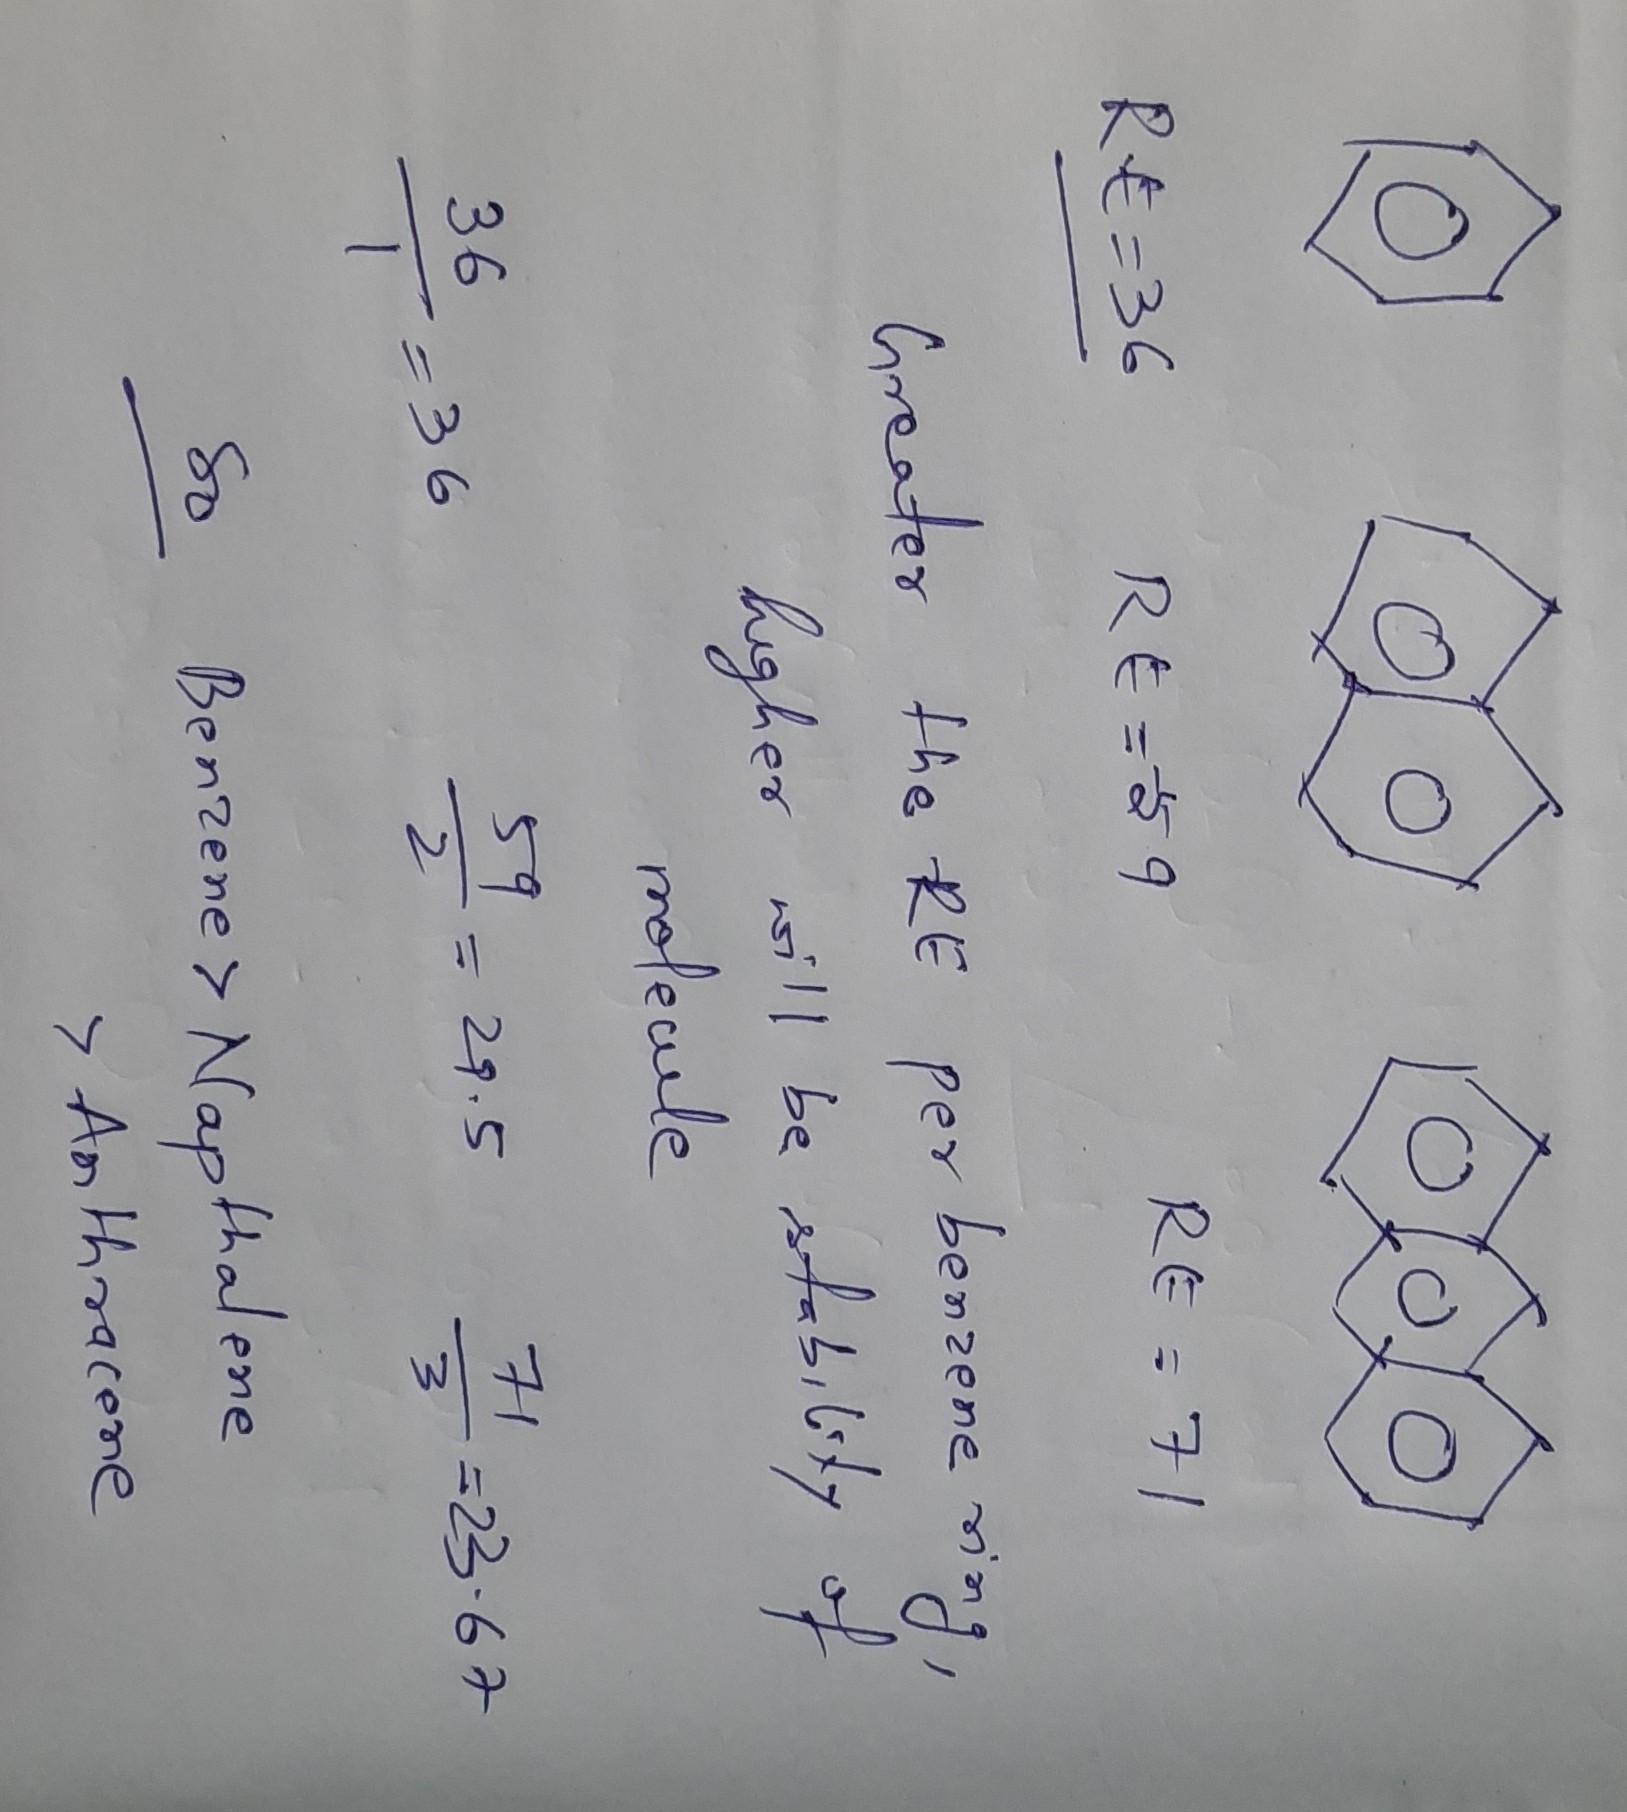 RE = 36 RE = 59 RE = 71
Greater the RE per benzene ring,
higher will be stability of
molecule
36/1 = 36 59/2 = 29.5 71/3 = 23.67
so Benzene > Napthalene
> Anthracene